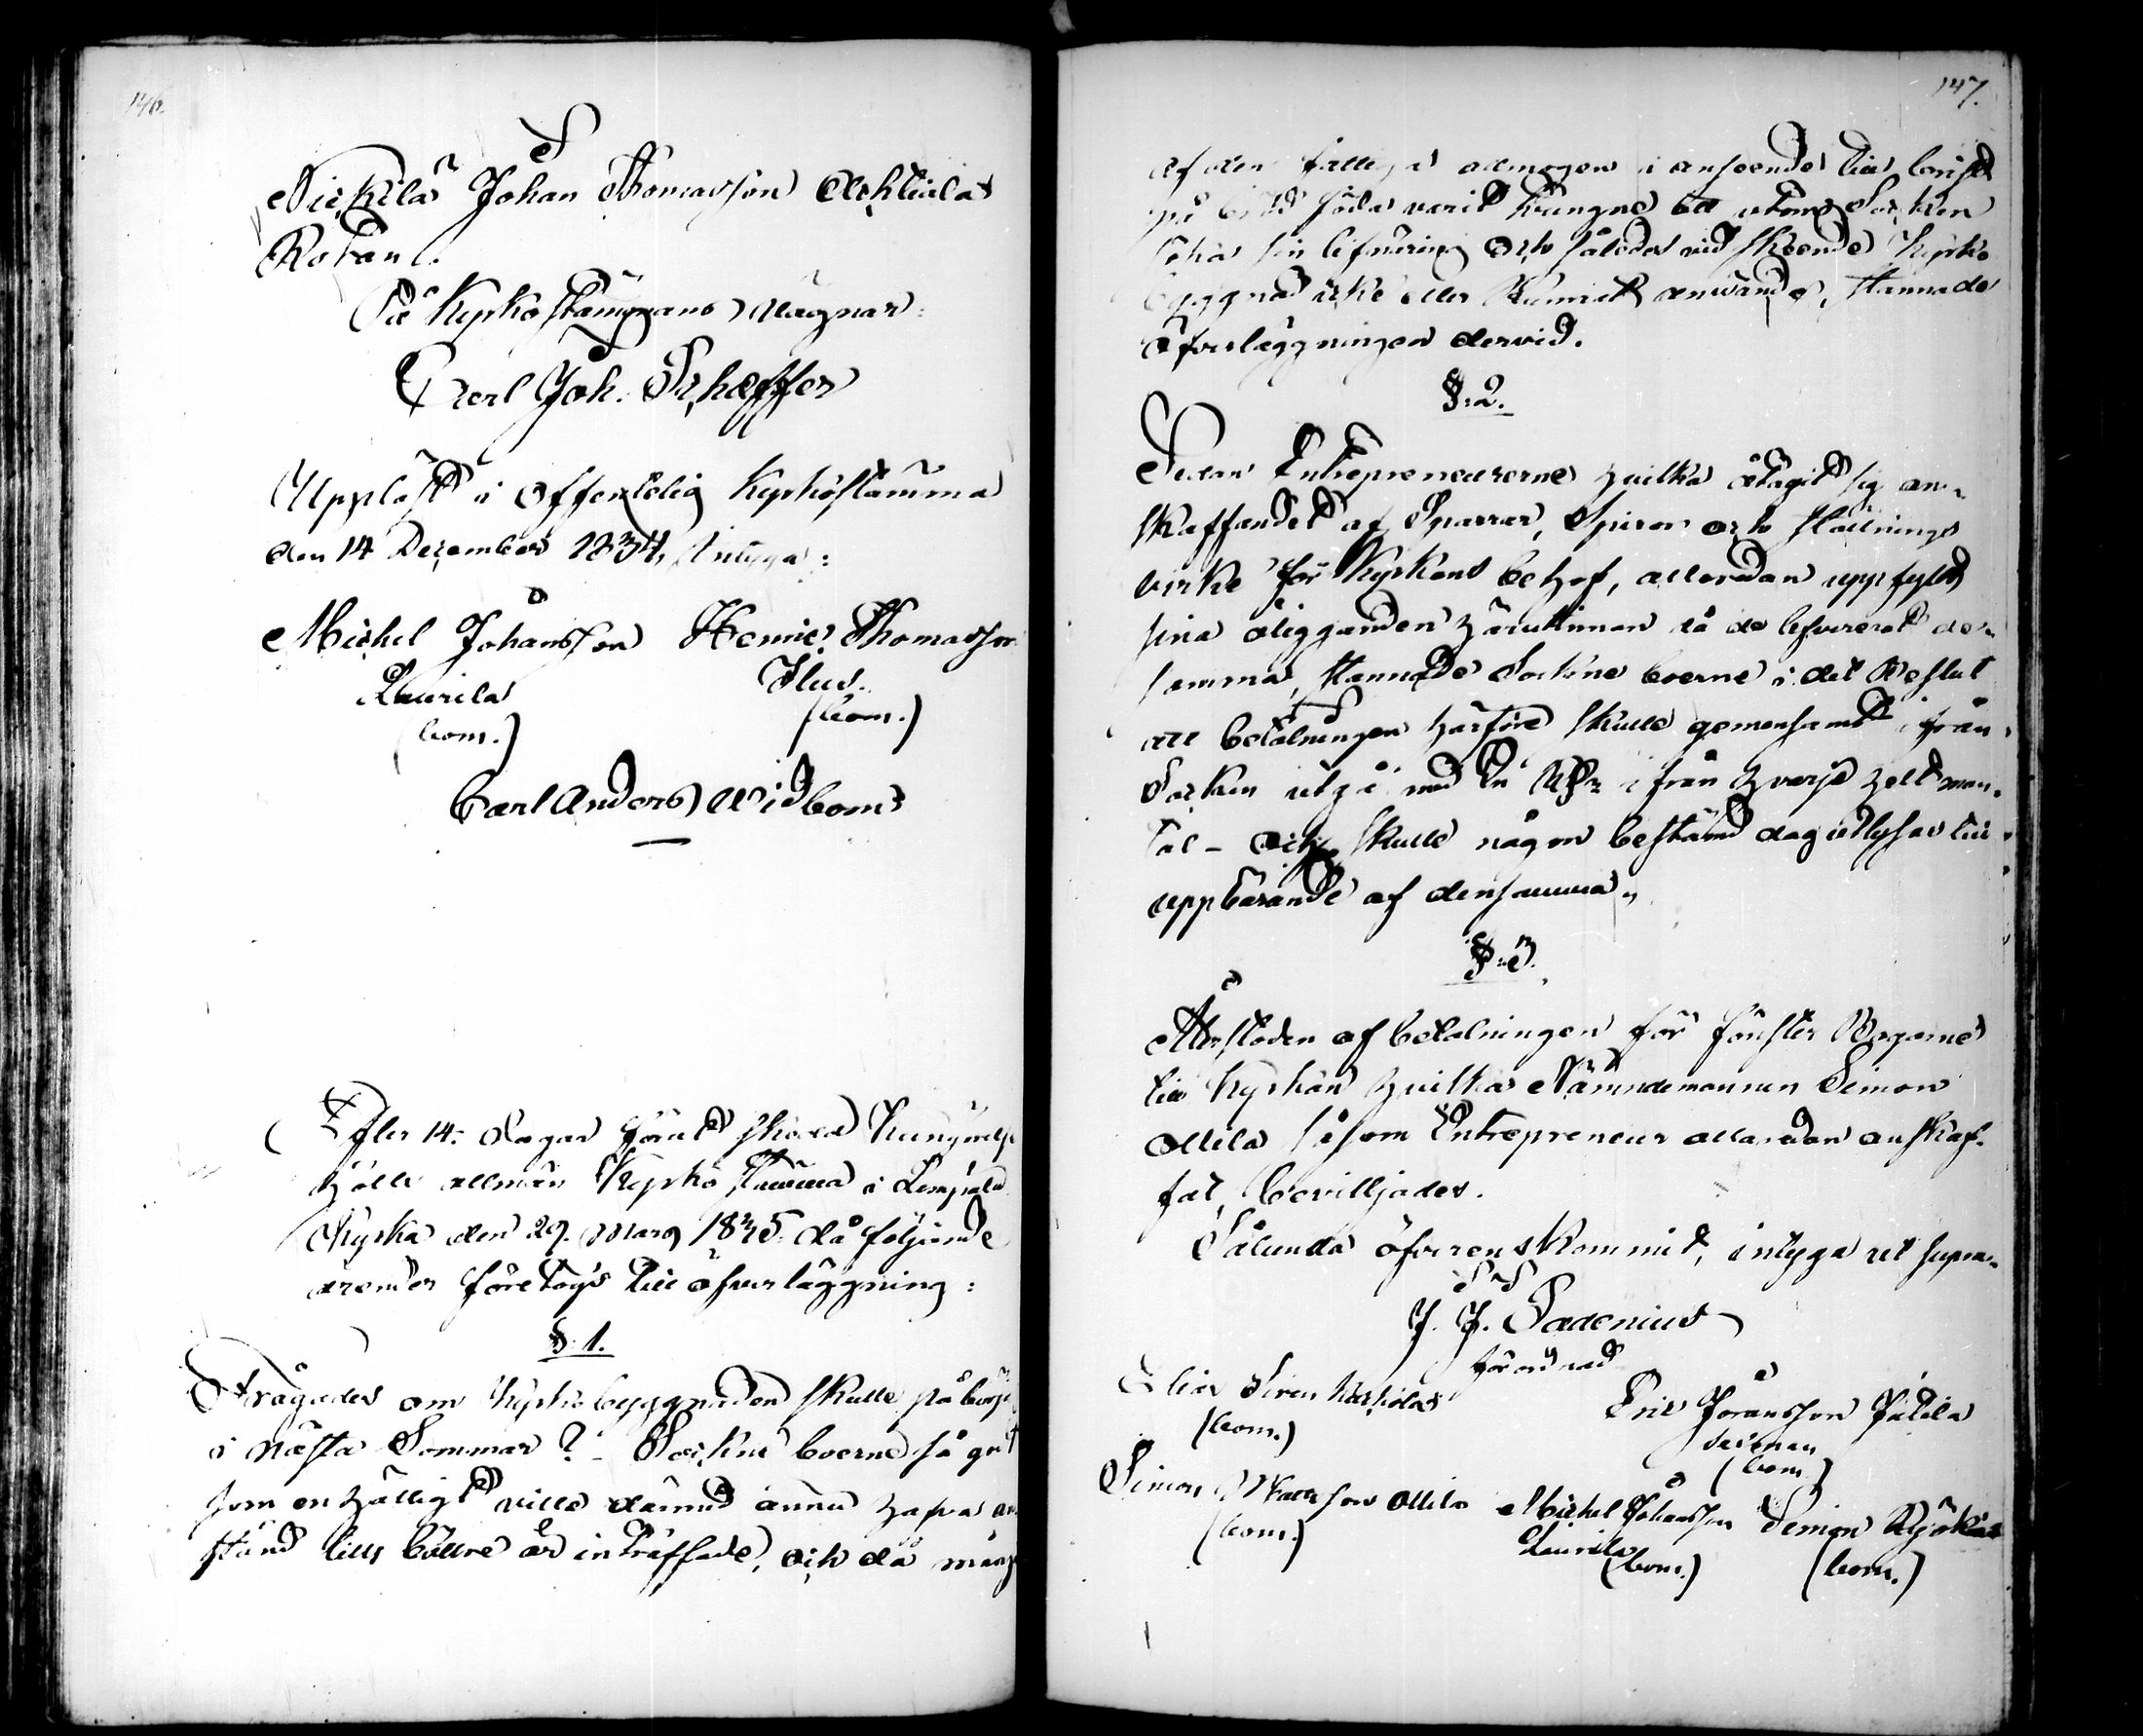 146.
Nickilä Johan Thomasson Ackkiala
Rotan.
På Kyrkostämmans wägnar:
Carl Joh. Schæffer
Uppläst i offentelig Kyrkostämma
den 14 December 1834, intyga:
Michel Johansson Henric Thomasson
Laurila Ilus.
(bom.) (bom.)
Carl Anders Widbom
Efter 14. dagar förut skedd kungörelse
hölls allmän Kyrko stämma i Lempäälä
Kyrka den 29. Mars 1835 då följande
ärender företogs till öfverläggning:
§. 1.
Frågades om Kyrkobyggnaden skulle påbörjas
i nästa Sommar? - Sockne boerne så godt
som enhälligt ville därmed ännu hafva an
stånd tills bättre år inträffade, och då mång
147.
af den fattiga allmogen i anseende till brist
på bröd föda varit tvungne att utom Socken
söka sin lifnäring och således vid skeende Kyrko
byggnad icke eller kunnat användas, stannade
öfverläggningen dervid.
§. 2.
Sedan Entrepreneurerne hvilka åtagit sig an-
skaffandet af Sparrar, Spiror och ställnings
virke för Kyrkans behof, alloredan uppfyldt
sina åligganden härutinnan då de lefvererat de-
samma, stannade Sockne boerne i det Beslut
att betalningen härföre skulle gemensamt ifrån
Socken utgå med En Rbr ifrån hvarje helt man-
tal - och skulle någon bestämd dag utlysas till
uppbärande af densamma.
§. 3.
Återstoden af betalningen för fönster Bogarne
till Kyrkan hvilka Nämndemannen Simon
Ollila såsom Entrepreneur allaredan anskaf-
fat, bevilljades.
Sålunda öfverenskommit, intyga ut supra.
J. J. Padenius
förordnad
Elias Siren Eric Joransson Jutila
(bom.) (bom)
Simon Mattsson Ollila Michel Johansson Simon
(bom.) Laurila (bom.) (bom.)